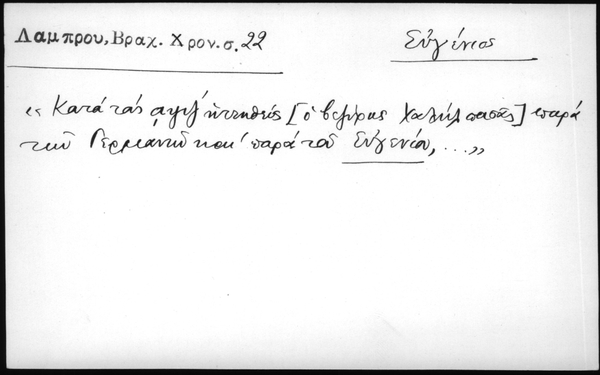 Λαμπρου, Βραχ. Χρον. σ. 22
Εὐγένιος
« Κατὰ τὰς αψιζ ἡττηθεὶς [ὁ βεζύρης Χαλὴλ πασᾶς] παρὰ
τῶν Γερμανῶν καὶ παρὰ τοῦ Εὐγενίου, ...»